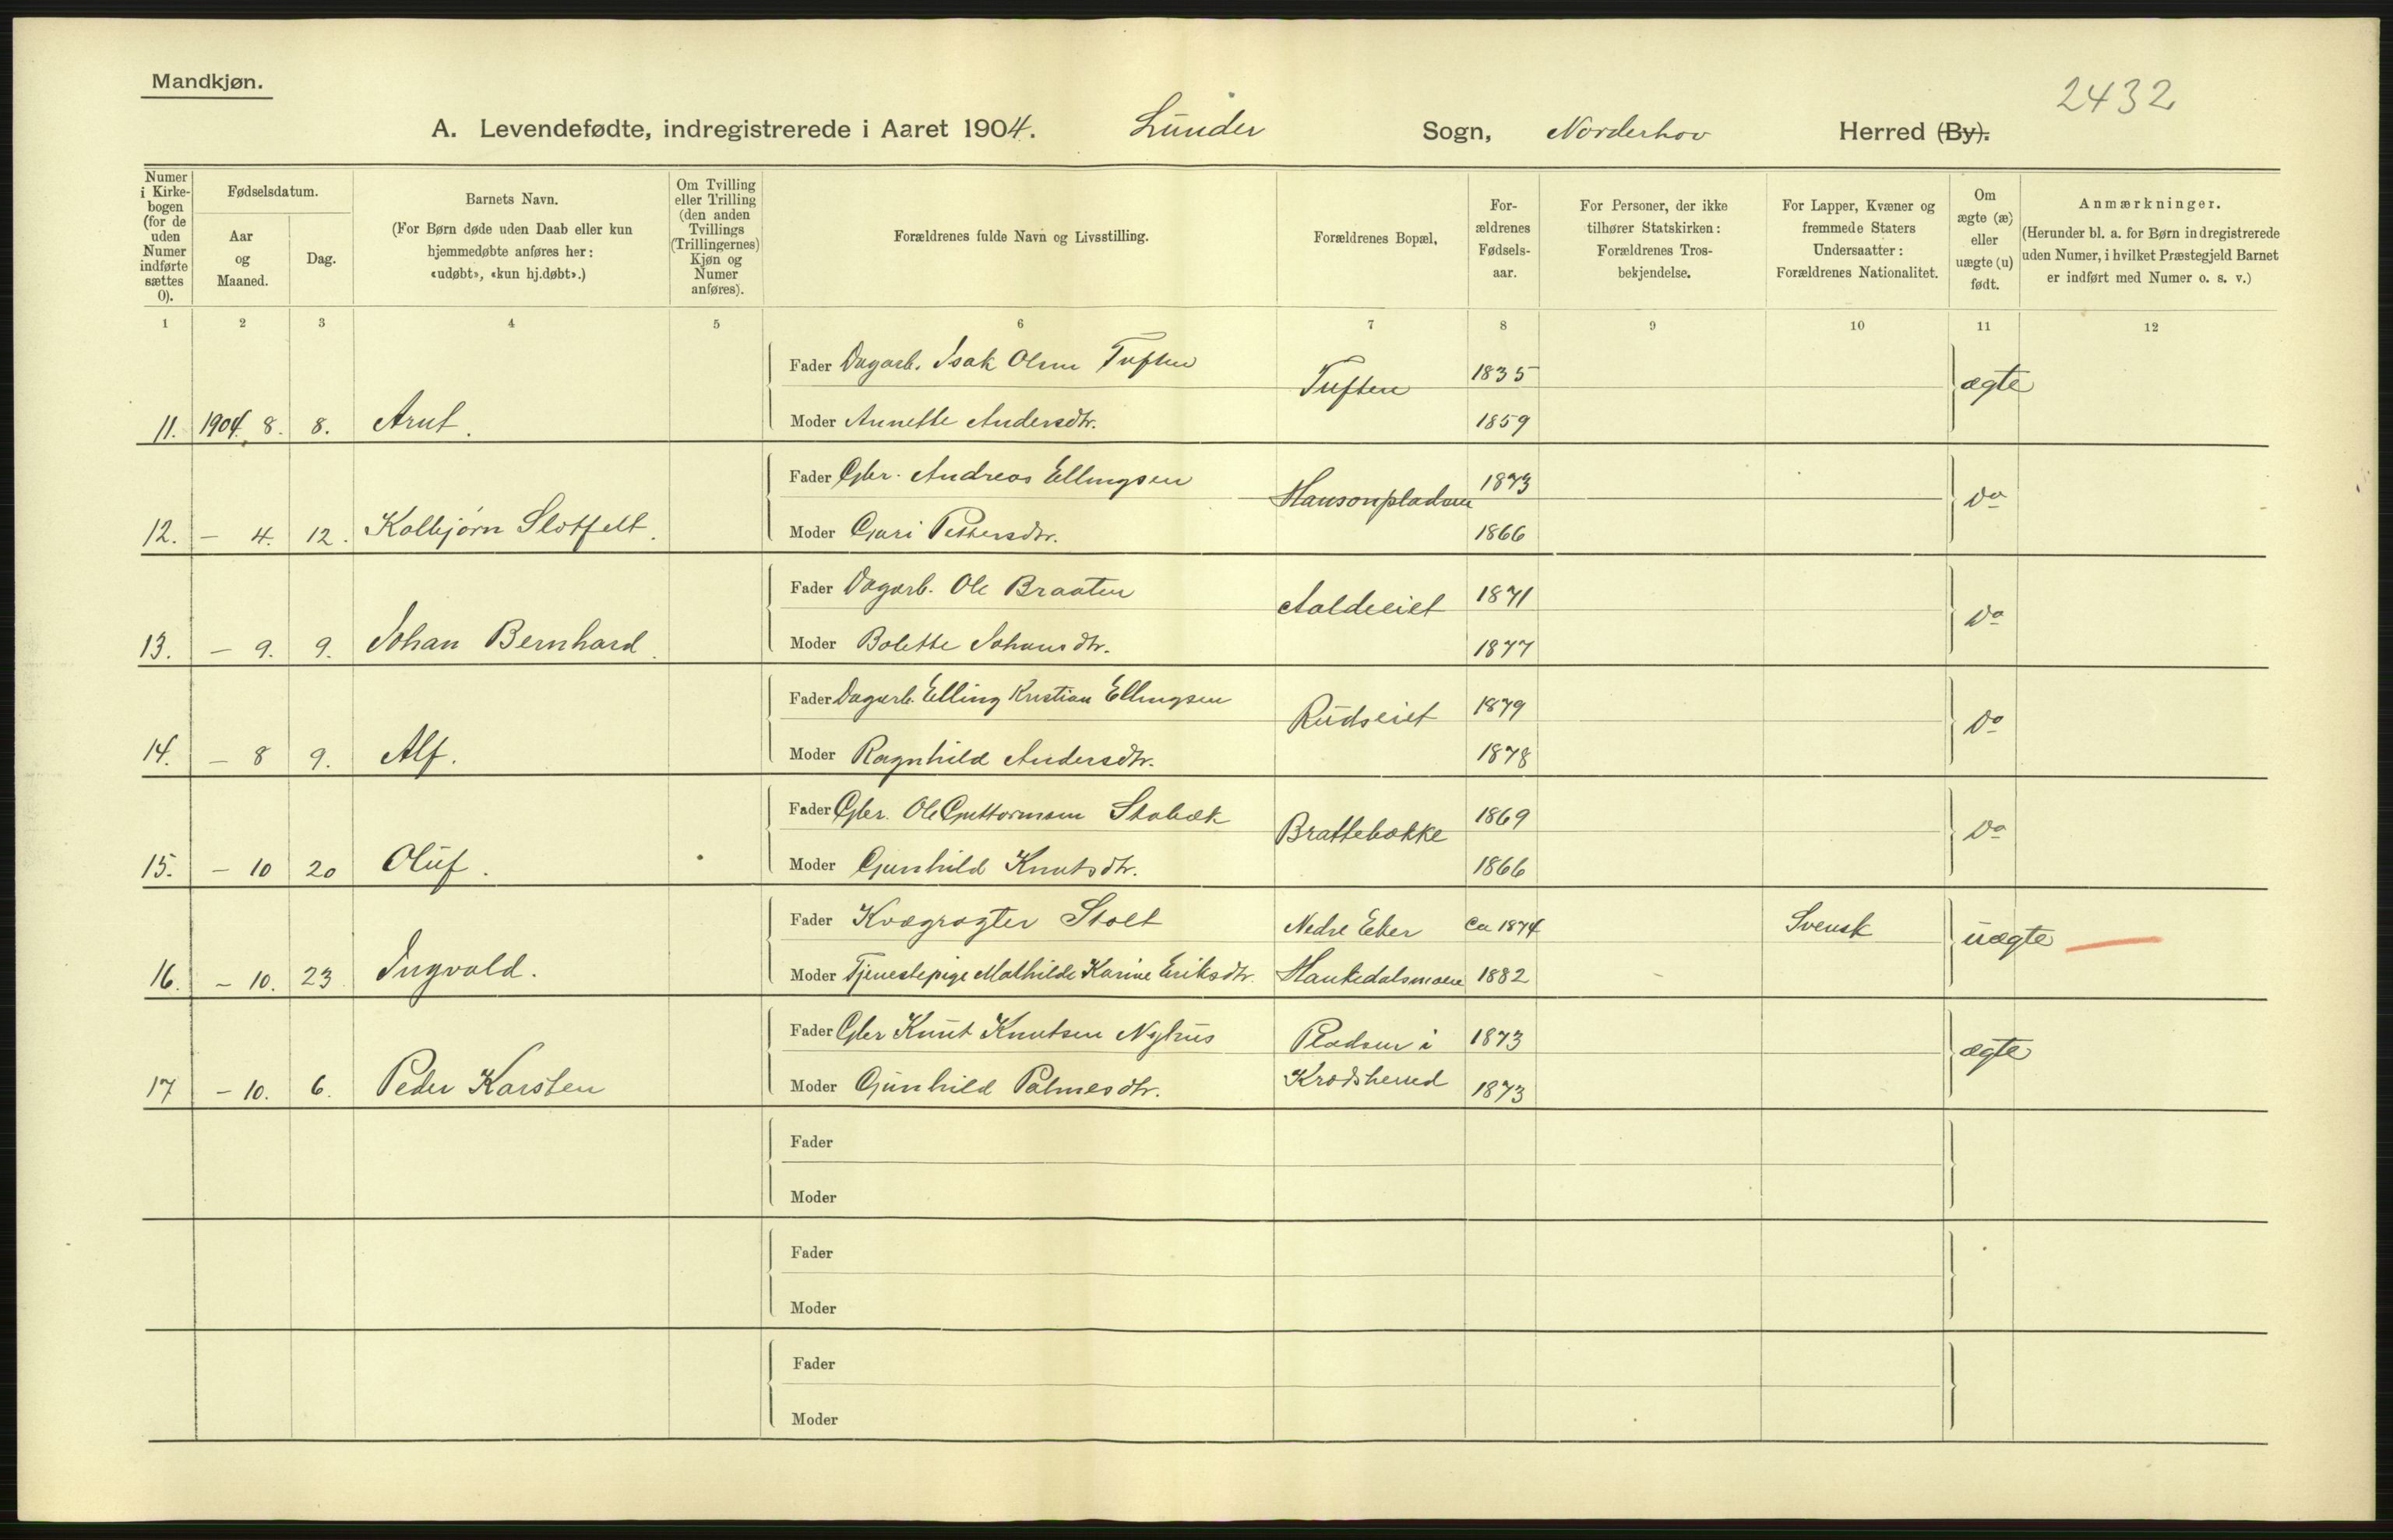 Mandkjøn.
2432
A. Levendefødte, indregistrerede i Aaret 1904. Lunder Sogn, Norderhov Herred (By).
Numer i Kirkebogen (for de uden Numer indførte sættes 0).
Fødselsdatum.
Aar og Maaned.
Dag.
Barnets Navn.
(For Børn døde uden Daab eller kun hjemmedøbte anføres her: «udøbt», «kun hj.døbt».)
Om Tvilling eller Trilling (den anden Tvillings (Trillingernes) Kjøn og Numer anføres).
Forældrenes fulde Navn og Livsstilling.
Forældrenes Bopæl,
Forældrenes Fødselsaar.
For Personer, der ikke tilhører Statskirken: Forældrenes Trosbekjendelse.
For Lapper, Kvæner og fremmede Staters Undersaatter: Forældrenes Nationalitet.
Om ægte (æ) eller uægte (u) født.
Anmærkninger.
(Herunder bl. a. for Børn indregistrerede uden Numer, i hvilket Præstegjeld Barnet er indført med Numer o. s. v.)
1 2 3 4 5 6 7 8 9 10 11 12
Fader Dagarb. Isak Olsen Tuften Tuften 1835 ægte
11. 1904, 8. 8. Arnt. Moder Annette Andersdtr. 1859
Fader Gbr. Andreas Ellingsen Hansonpladsen 1873 Do
12. — 4. 12. Kolbjørn Slotfelt. Moder Guri Pettersdtr. 1866
Fader Dagarb. Ole Braaten Aaldeeiet 1871 Do
13. — 9. 9. Johan Bernhard. Moder Bolette Johansdtr. 1877
Fader Dagarb. Elling Kristian Ellingsen Rudseiet 1879 Do
14. — 8 9. Alf. Moder Ragnhild Andersdtr. 1878
Fader Gbr. Ole Guttormsen Stabæk Brattebække 1869 Do
15. — 10 20 Oluf. Moder Gunhild Knutsdtr. 1866
Fader Kvægrøgter Stolt Nedre Eker ca 1874 Svensk uægte
16. — 10. 23 Ingvald. Moder Tjenestepige Mathilde Karine Eriksdtr. Haukedalsmoen 1882
Fader Gbr Knut Knutsen Nyhus Pladsen i 1873 ægte
17 — 10. 6. Peder Karsten Moder Gunhild Palmesdtr. Krødsherred 1873
Fader
Moder
Fader
Moder
Fader
Moder